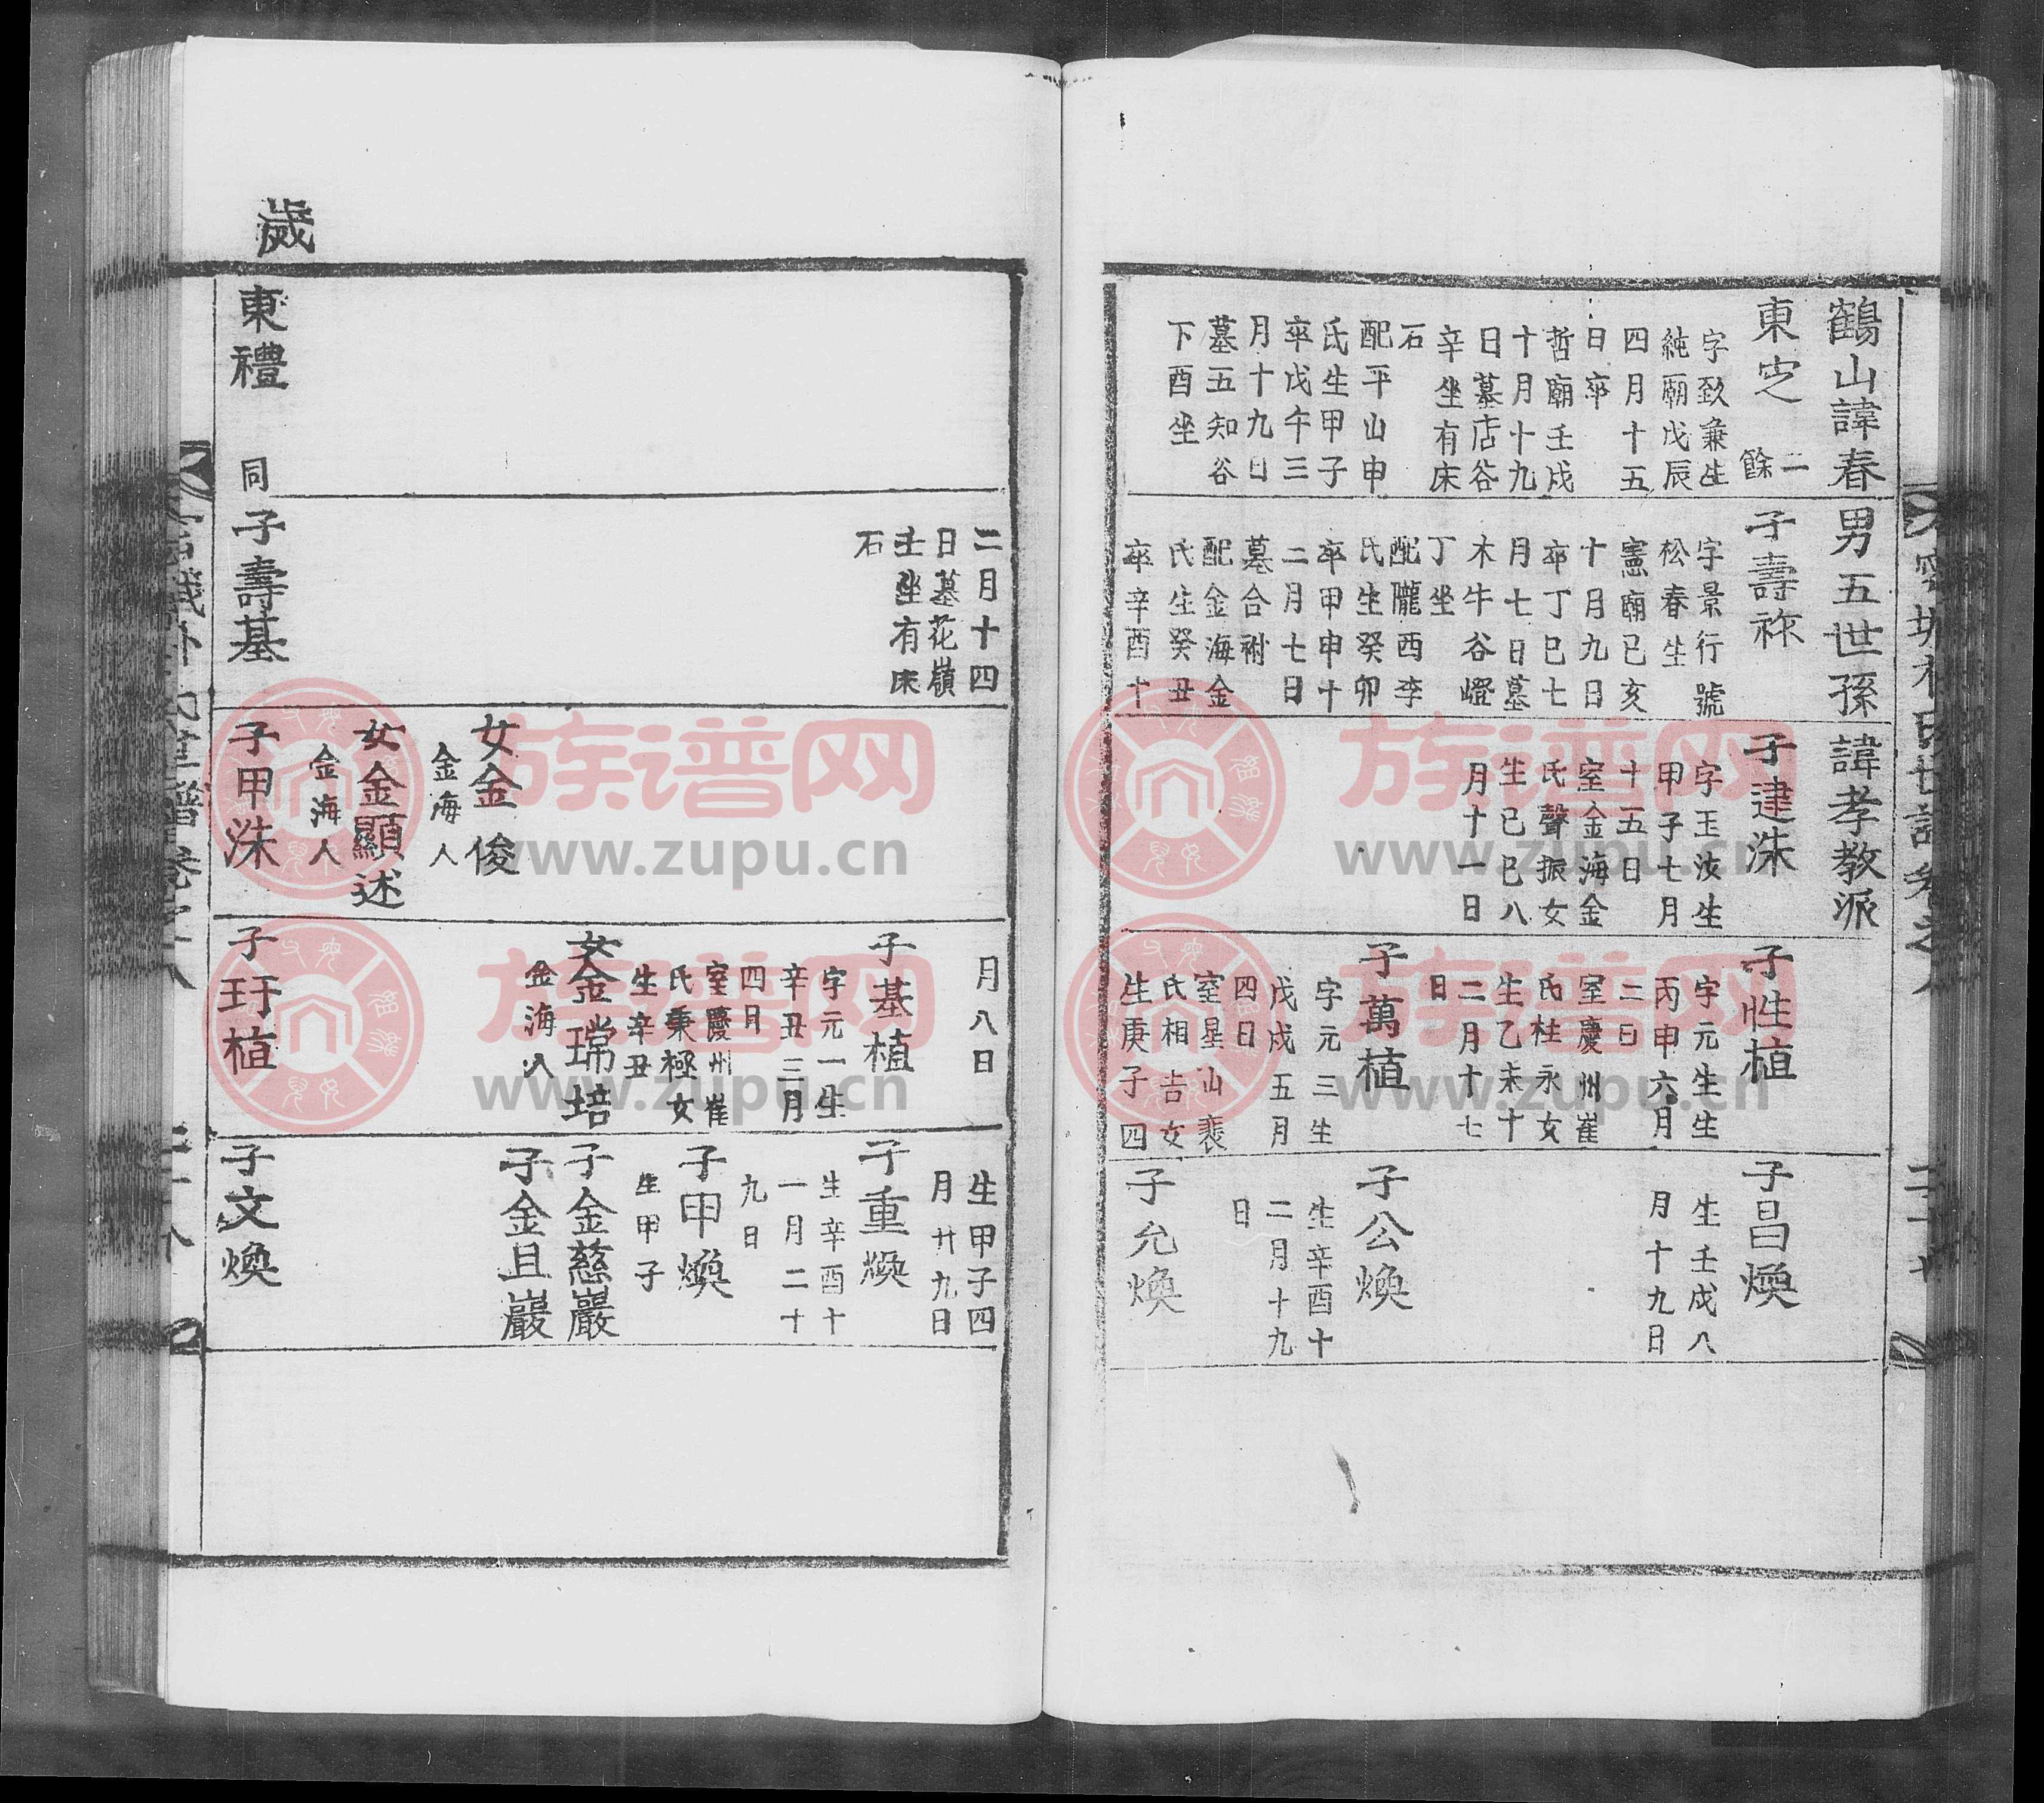 鶴山諱春
男五世孫
諱孝教派
東㝎
二
餘
字致兼生
純廟戊辰
四月十五
日卒
哲廟壬戌
十月十九
日墓店谷
辛坐有床
石
配平山申
氏生甲子
卒戊午三
月十九日
墓五知谷
下酉坐
子壽祢
字景行號
松春生
憲廟己亥
十月九日
卒丁巳七
月七日墓
木牛谷嶝
丁坐
配隴西李
氏生癸卯
卒甲申十
二月七日
墓合祔
配金海金
氏生癸丑
卒辛酉十
子建洙
字玉汝生
甲子七月
十五日
室金海金
氏聲振女
生己巳八
月十一日
子性植
字元生生
丙申六月
二日
室慶州崔
氏柱永女
生乙未十
二月十七
日
子萬植
字元三生
戊戌五月
四日
室星山裵
氏相吉女
生庚子四
子昌煥
生壬戌八
月十九日
子公煥
生辛酉十
二月十九
日
子允煥
歲
東禮
同
二月十四
日墓花嶺
壬坐有床
石
子壽基
女金俊
金海人
女金顯述
金海人
子甲洙
月八日
子基植
字元一生
辛丑三月
四月
室慶州崔
氏秉極女
生辛丑
女金瑺培
金海人
子玗植
生甲子四
月廿九日
子重煥
生辛酉十
一月二十
九日
子甲煥
生甲子
子金慈巖
子金且巖
子文煥
族谱网
www.zupu.cn
族谱网
www.zupu.cn
族谱网
www.zupu.cn
族谱网
www.zupu.cn